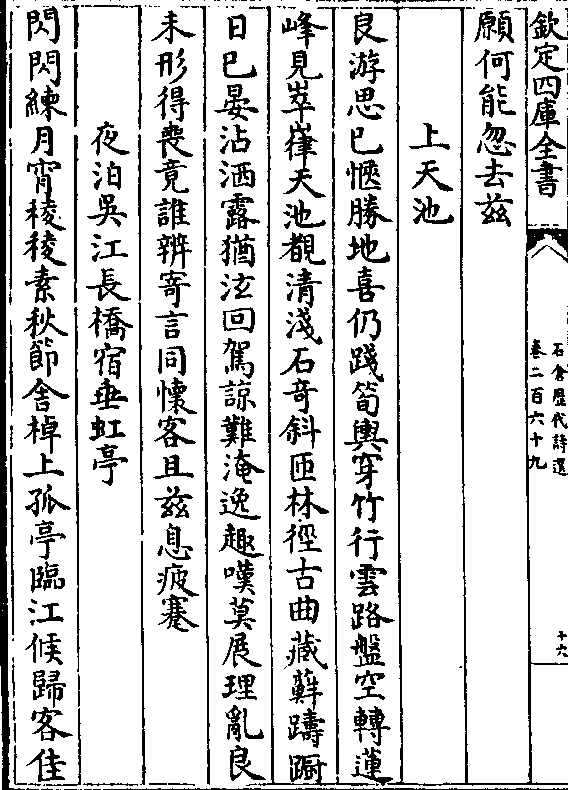 欽定四庫全書
石倉歷代詩選
卷二百六十九
十六
願何能忽去兹
上天池
良游思已愜勝地喜仍踐筍輿穿竹行雲路盤空轉蓮
峰見崒嵂天池覩清淺石奇斜匝林徑古曲藏蘚躊躕
日已晏沾洒露猶泫回駕諒難淹逸趣嘆莫展理亂良
未形得喪竟誰辨寄言同懷客且兹息疲蹇
夜泊吳江長橋宿垂虹亭
閃閃練月宵稜稜素秋節舎棹上孤亭臨江候歸客佳